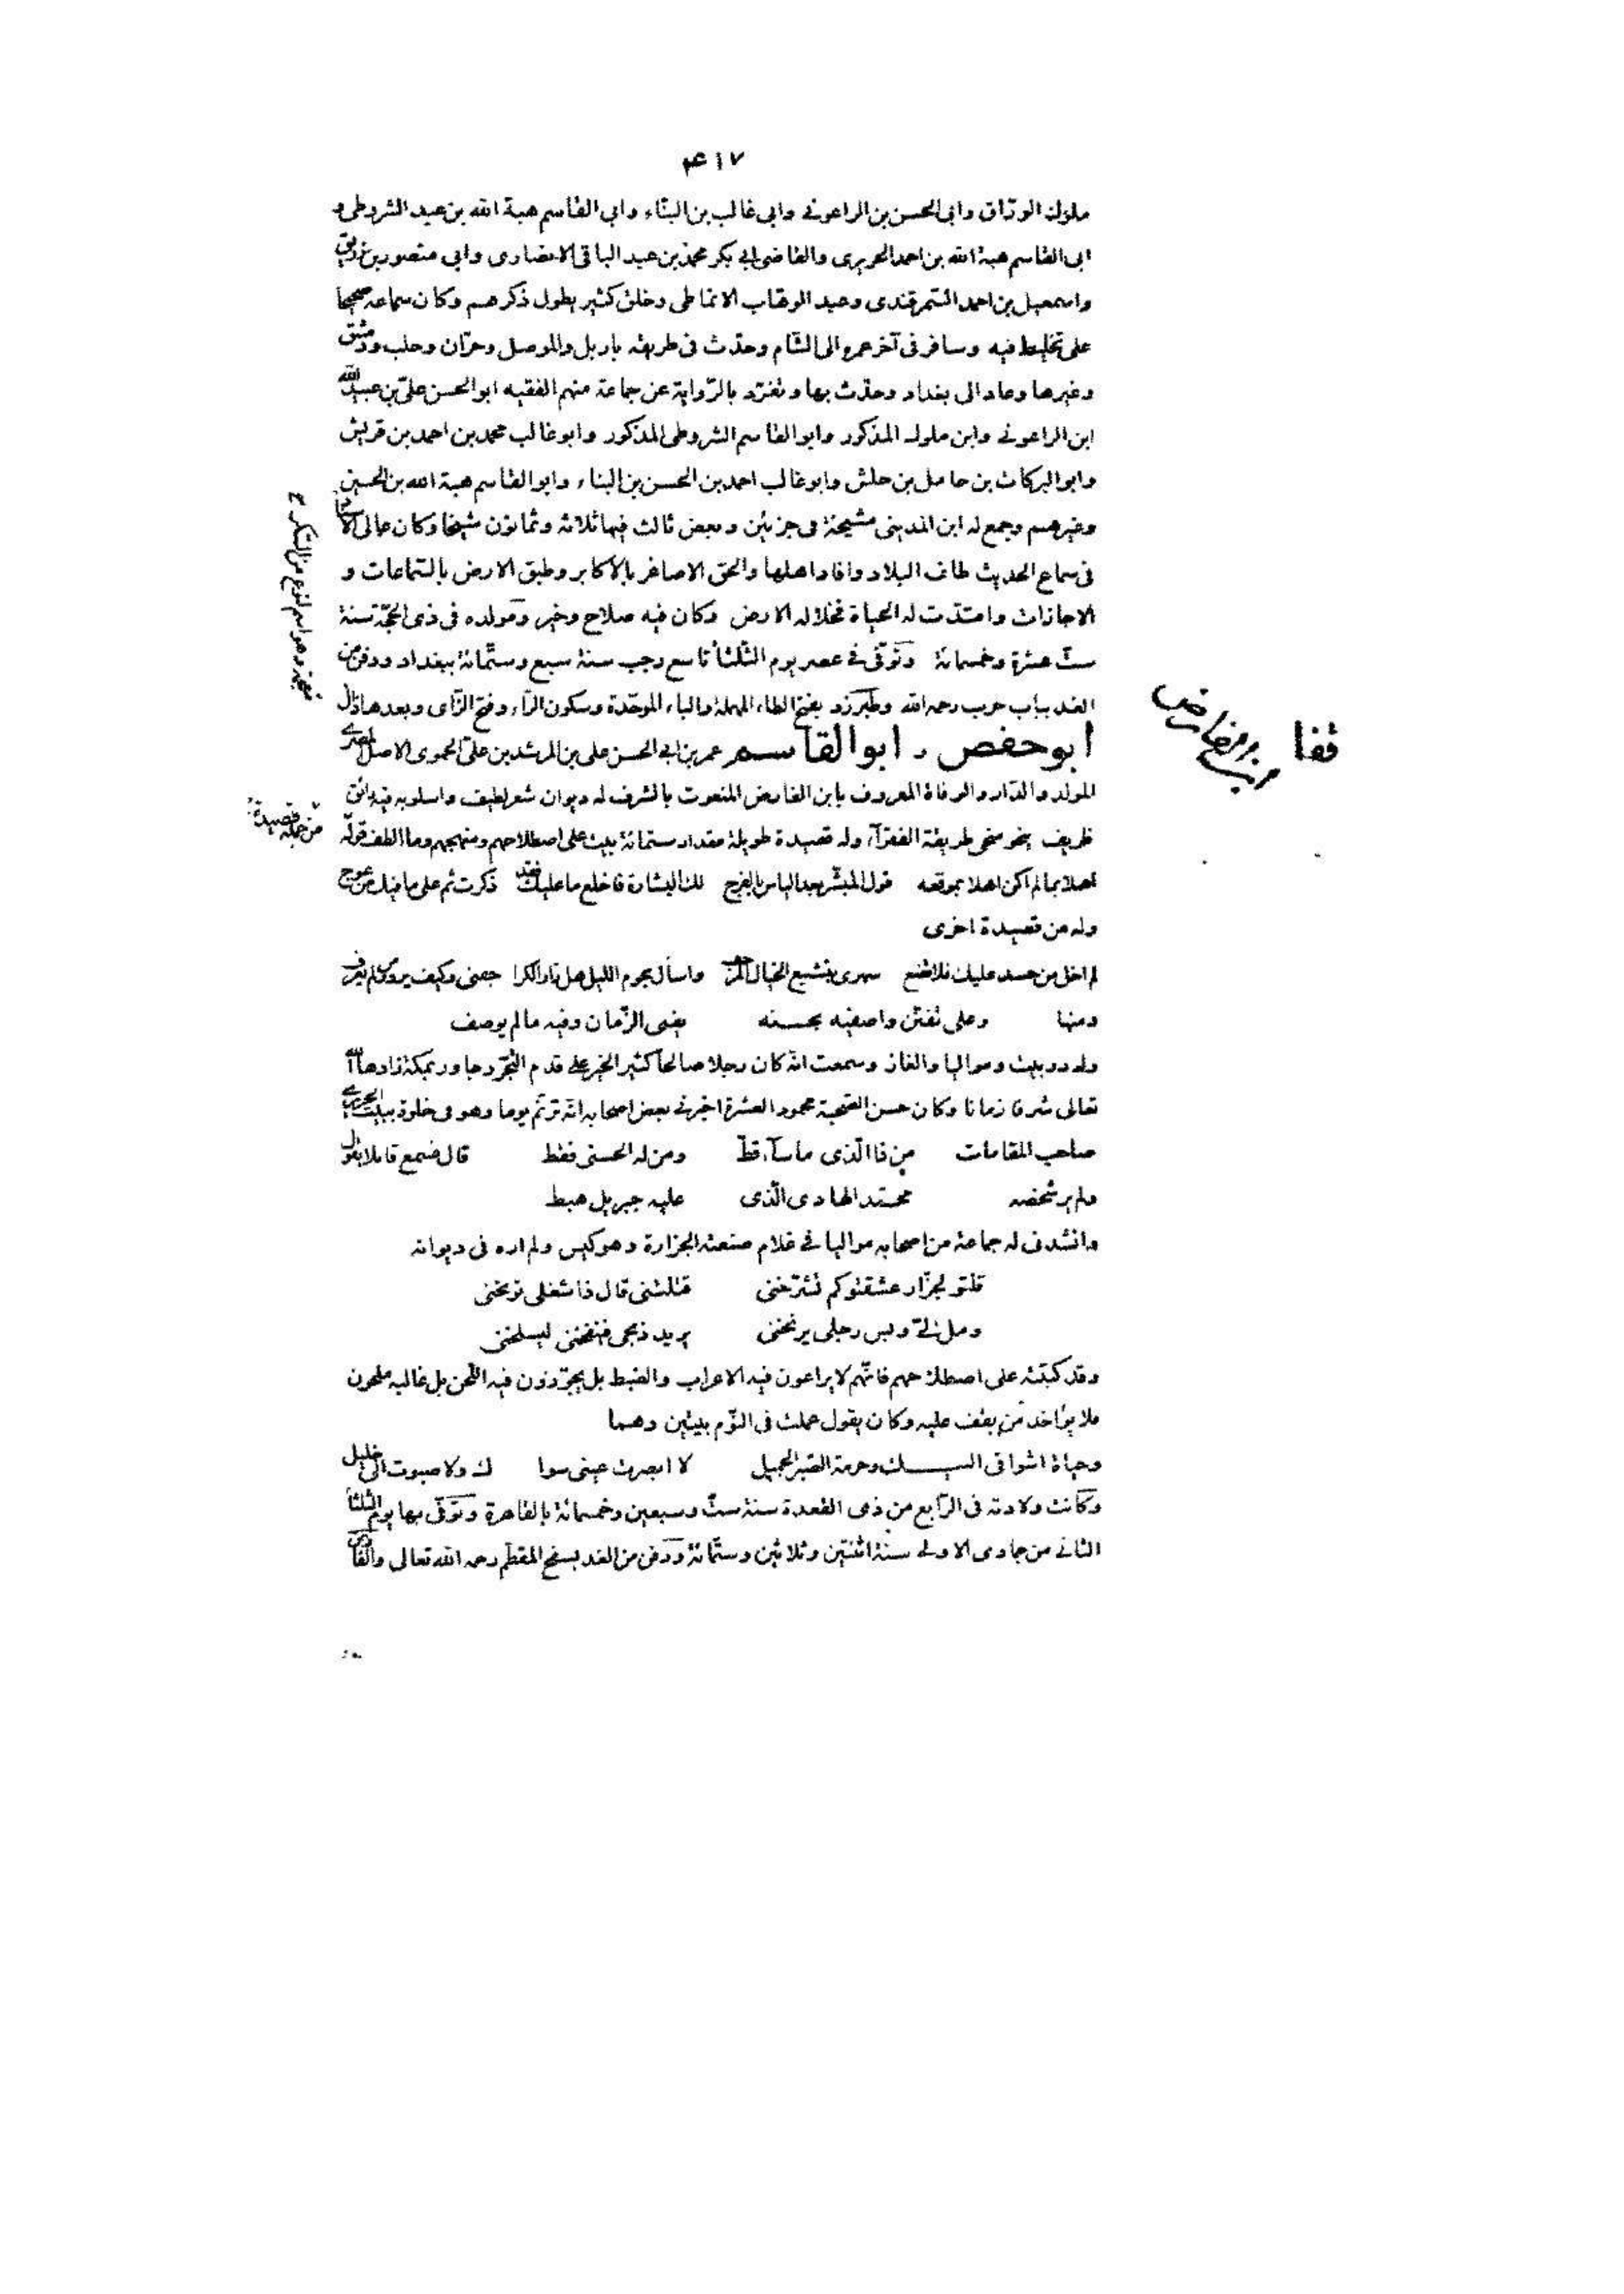 ۴۱۷
ملوك الورّاق وابى الحسن بن الراغونے وابى غالب بن البنّاء وابى القاسم هبة الله بن عبد الشروطى و
ابى القاسم هبة الله بن احمد الحريرى والقاضى ابى بكر محمد بن عبد الباقى الانصارى وابى منصور بن زريق
واسمعيل بن احمد السّمرقندى وعبد الوهّاب الانماطى وخلق كثير يطول ذكرهم وكان سماعه صحيحا
على تخليط فيه وسافر فى آخر عمره الى الشّام وحدّث فى طريقه باربل والموصل وحرّان وحلب ودمشق
وغيرها وعاد الى بغداد وحدّث بها وتفرّد بالرّواية عن جماعة منهم الفقيه ابو الحسن علىّ بن عبيد الله
ابن الراغونے وابن ملوك المذكور وابو القاسم الشروطى المذكور وابو غالب محمد بن احمد بن قريش
وابو البركات بن حامل بن حلش وابو غالب احمد بن الحسن بن البناء وابو القاسم هبة الله بن الحسين
وغيرهم وجمع له ابن المدينى مشيخة فى جزئين وبعض ثالث فيها ثلاثة وثمانون شيخا وكان عالى الاسناد
فى سماع الحديث طاف البلاد وافاد اهلها والحق الاصاغر بالاكابر وطبق الارض بالسّماعات و
الاجازات وامتدّت له الحياة فخلا له الارض وكان فيه صلاح وخير ومولده فى ذى الحجّة سنة
ستّ عشرة وخمسمائة وتوفّى فے عصر يوم الثّلثا تاسع رجب سنة سبع وستّمائة ببغداد ودفن من
الغد بباب حرب رحمه الله وطبرزد بفتح الطاء المهملة والباء الموحّدة وسكون الرّاء وفتح الزّاى وبعدها ذال
معجمة وهو اسم لنوع من السّكر ح
ابو حفص و ابو القاسم عمر بن ابى الحسن على بن المرشد بن علىّ الحموى الاصل المصرے
المولد والدّار والوفاة المعروف بابن الفارض المنعوت بالشرف له ديوان شعر لطيف واسلوبه فيه رائق
ظريف ينحو منحى طريقة الفقرآء وله قصيدة طويلة مقدار ستمائة بيت على اصطلاحهم ومنهجهم وما الطف قوله
من جملة قصيدة
اهلا بما لم اكن اهلا بموقعه قول المبشّر بعد الياس بالفرج لك البشارة فاخلع ما عليك فقد ذكرت ثم على ما فيك من عوج
وله من قصيدة اخرى
لم اخل من حسد عليك فلا تضع سهرى بتشنيع الخيال المرجف واسأل نجوم الليل هل زار الكرا جفنى وكيف يزور من لم يعرف
ومنها وعلى تفنّن واصفيه بحسنه يفنى الزّمان وفيه ما لم يوصف
وله دوبيت ومواليا والغاز وسمعت انّه كان رجلا صالحا كثير الخير على قدم التّجرّد جاور بمكة زادها الله
تعالى شرفا زمانا وكان حسن الصّحبة محمود العشرة اخبرنے بعض اصحابه انّه ترنّم يوما وهو فى خلوة ببيت الحريرے
صاحب المقامات من ذا الّذى ما سآء قطّ ومن له الحسنى فقط قال فسمع قائلا يقول
ولم ير شخصه محمّد الهادى الّذى عليه جبريل هبط
وانشدنى له جماعة من اصحابه مواليا فے غلام صنعته الجزارة وهو كيّس ولم اره فى ديوانه
قلتو لجزّار عشقتو كم تشرّحنى قتلتنى قال ذا شغلى توبّخنى
ومل الىّ وبس رجلى يرنّحنى يريد ذبحى فينفخنى ليسلخنى
وقد كتبته على اصطلاحهم فانّهم لا يراعون فيه الاعراب والضبط بل يجوّزون فيه اللّحن بل غالبه ملحون
فلا يؤاخذ من يقف عليه وكان يقول عملت فى النّوم بيتين وهما
وحياة اشواقى اليــــك وحرمة الصّبر الجميل لا ابصرت عينى سوا ك ولا صبوت الى خليل
وكانت ولادته فى الرّابع من ذى القعدة سنة ستّ وسبعين وخمسمائة بالقاهرة وتوفّى بها يوم الثلثا
الثانے من جمادى الاولے سنة اثنتين وثلاثين وستّمائة ودفن من الغد بسفح المقطّم رحمه الله تعالى والفارض